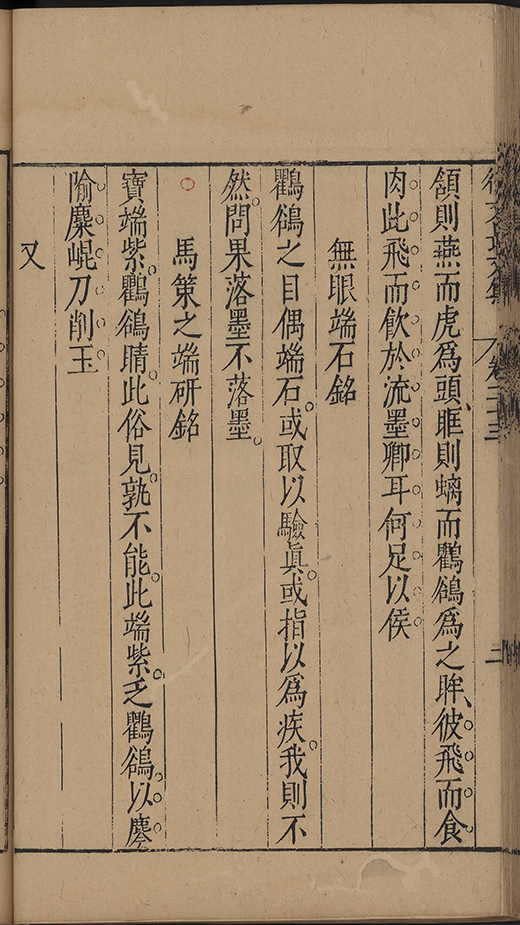 徐文長文集 卷二十三 二
頷則燕而虎爲頭、眶則螭而鸜鵒爲之眸、彼飛而食
肉此飛而飲於流墨卿耳何足以侯
無眼端石銘
鸜鵒之目偶端石。或取以驗眞。或指以爲疾。我則不
然。問果落墨不落墨。
馬策之端硏銘
寶端紫。鸜鵒睛。此俗見。孰不能。此端紫。乏鸜鵒。以
隃麋崐刀削玉
又